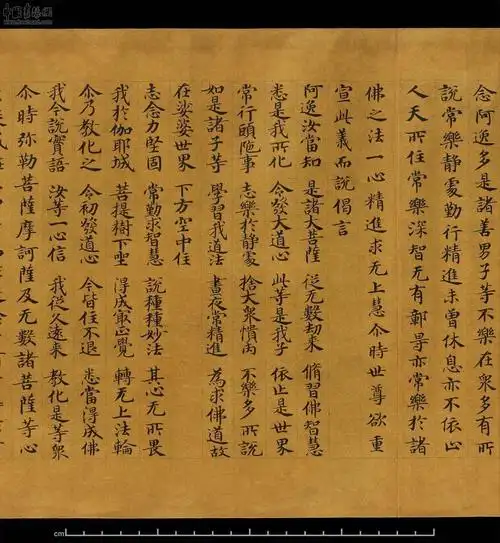 念阿逸多是諸善男子等不樂在衆多有所
說常樂靜處勤行精進未曾休息亦不依止
人天所住常樂深智无有鄣㝵亦常樂於諸
佛之法一心精進求无上慧尒時世尊欲重
宣此義而說偈言
阿逸汝當知 是諸大菩薩 從无數劫来 脩習佛智慧
悉是我所化 令發大道心 此等是我子 依止是世界
常行頭陁事 志樂於靜處 捨大衆憒丙 不樂多所說
如是諸子等 學習我道法 晝夜常精進 為求佛道故
在娑婆世界 下方空中住
志念力堅固 常勤求智慧 說種種妙法 其心无所畏
我於伽耶城 菩提樹下坐 得成冣正覺 轉无上法輪
尒乃教化之 令初發道心 今皆住不退 悉當得成佛
我今說實語 汝等一心信 我從久遠来 教化是等衆
尒時弥勒菩薩摩訶薩及无數諸菩薩等心
cm